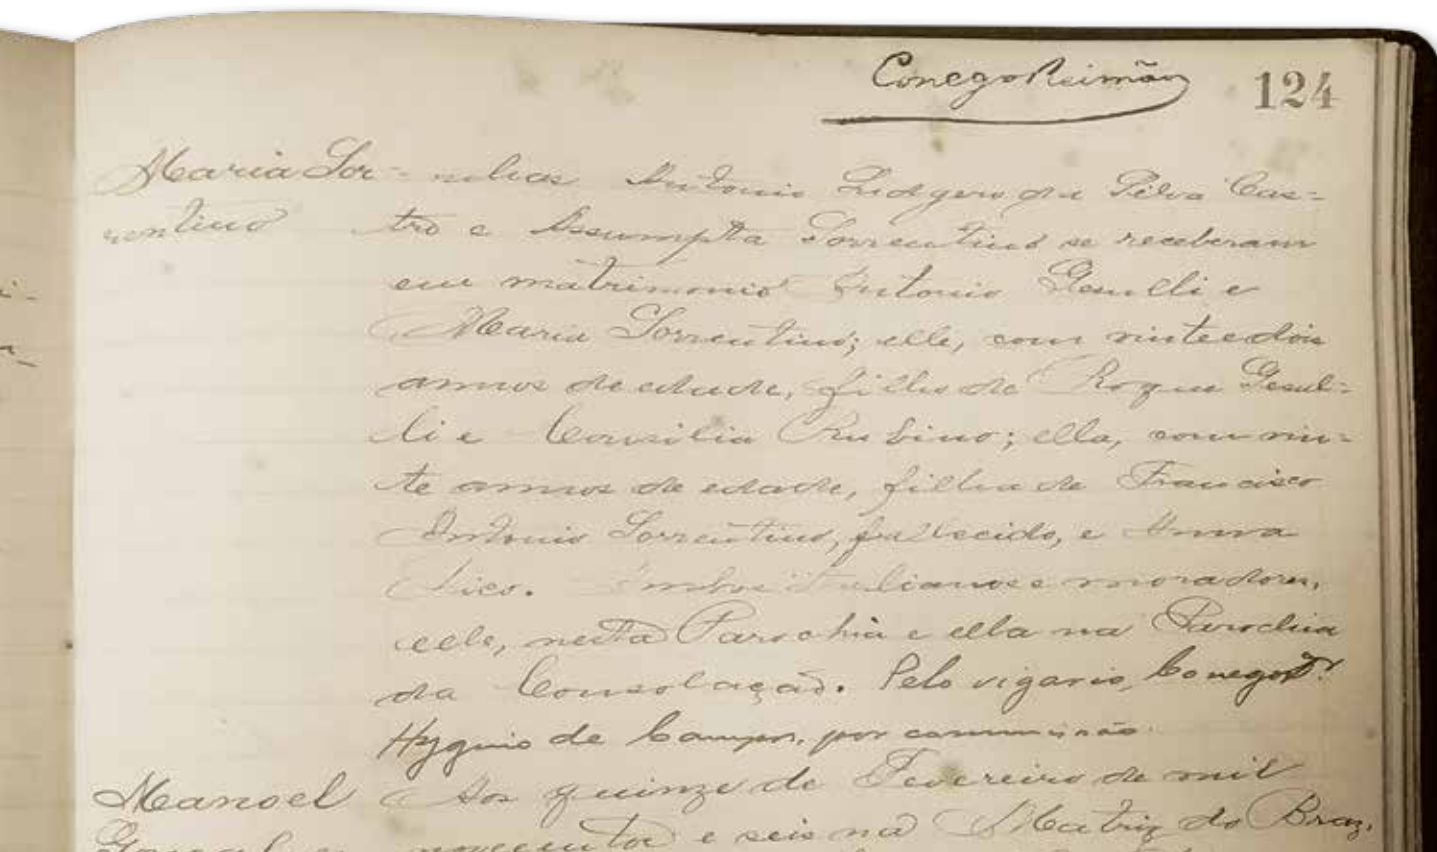 Conego Reimão
124
Maria Sor-
rentino
nhas Antonio Ludgero da Silva Cas-
tro e Assumpta Sorrentino se receberam
em matrimonio Antonio Gesulli e
Maria Sorrentino; elle, com vinte e dois
annos de edade, filho de Roque Gesul-
li e Consilia Rubino; ella, com vin-
te annos de edade, filha de Francisco
Antonio Sorrentino, fallecido, e Anna
Lico. Ambos italianos e moradores,
elle, nesta Parochia e ella na Parochia
da Consolação. Pelo vigario, Conego Dr.
Hygino de Campos, por commissão.
Manoel
Aos quinze de Fevereiro de mil
novecentos e seis na Matriz do Braz,